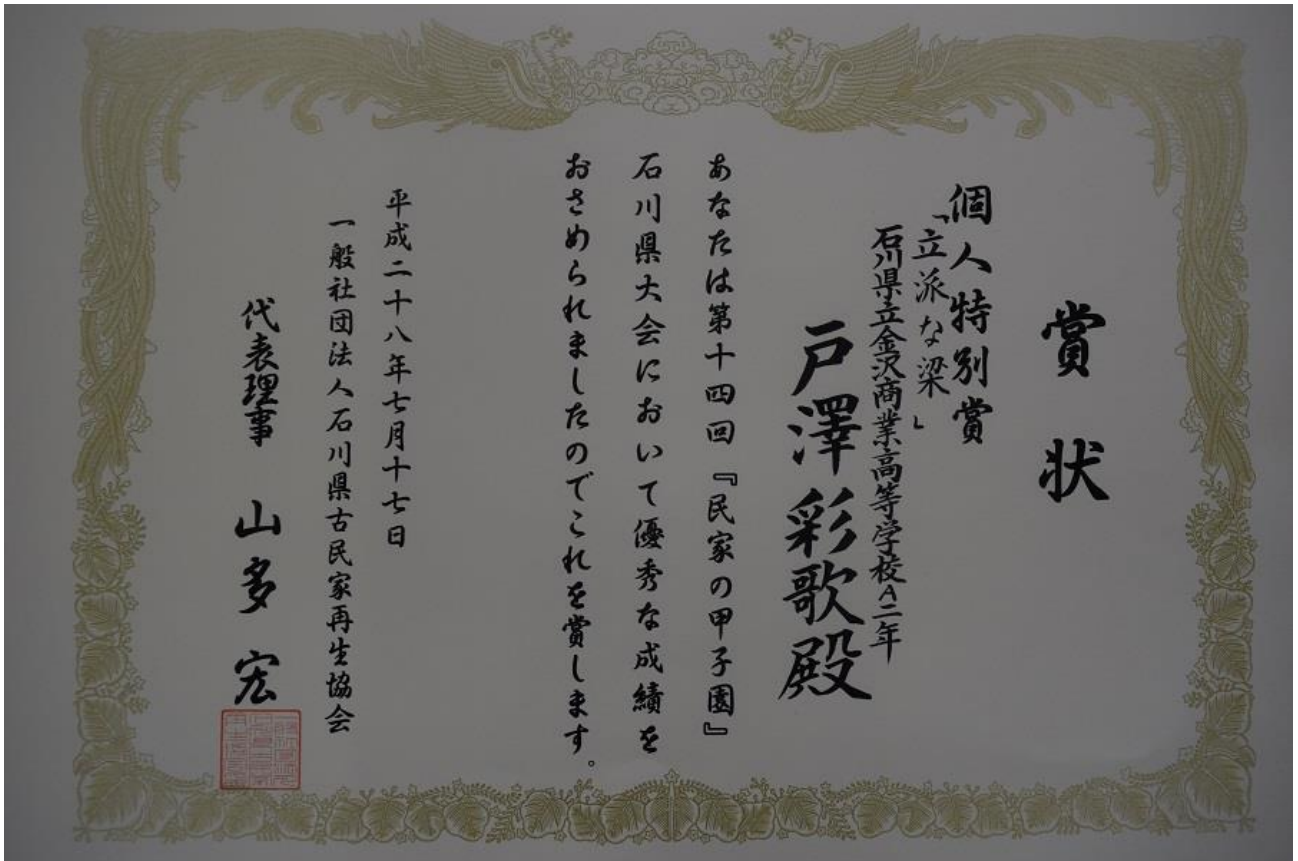 賞状
個人特別賞
「立派な梁」
石川県立金沢商業高等学校A二年
戸澤彩歌殿
あなたは第十四回『民家の甲子園』
石川県大会において優秀な成績を
おさめられましたのでこれを賞します。
平成二十八年七月十七日
一般社団法人石川県古民家再生協会
代表理事 山多宏